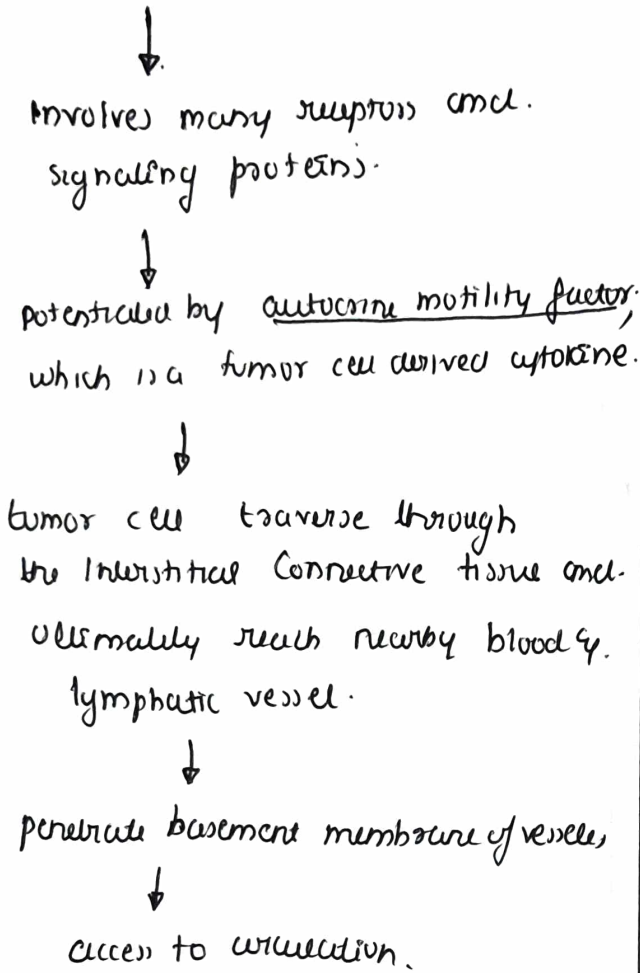 Involves many receptors and.
signaling proteins.
potentiated by autocrine motility factor,
which is a tumor cell derived cytokine.
tumor cell traverse through
the Interstitial Connective tissue and.
ultimately reach nearby blood &.
lymphatic vessel.
penetrate basement membrane of vessels
access to circulation.